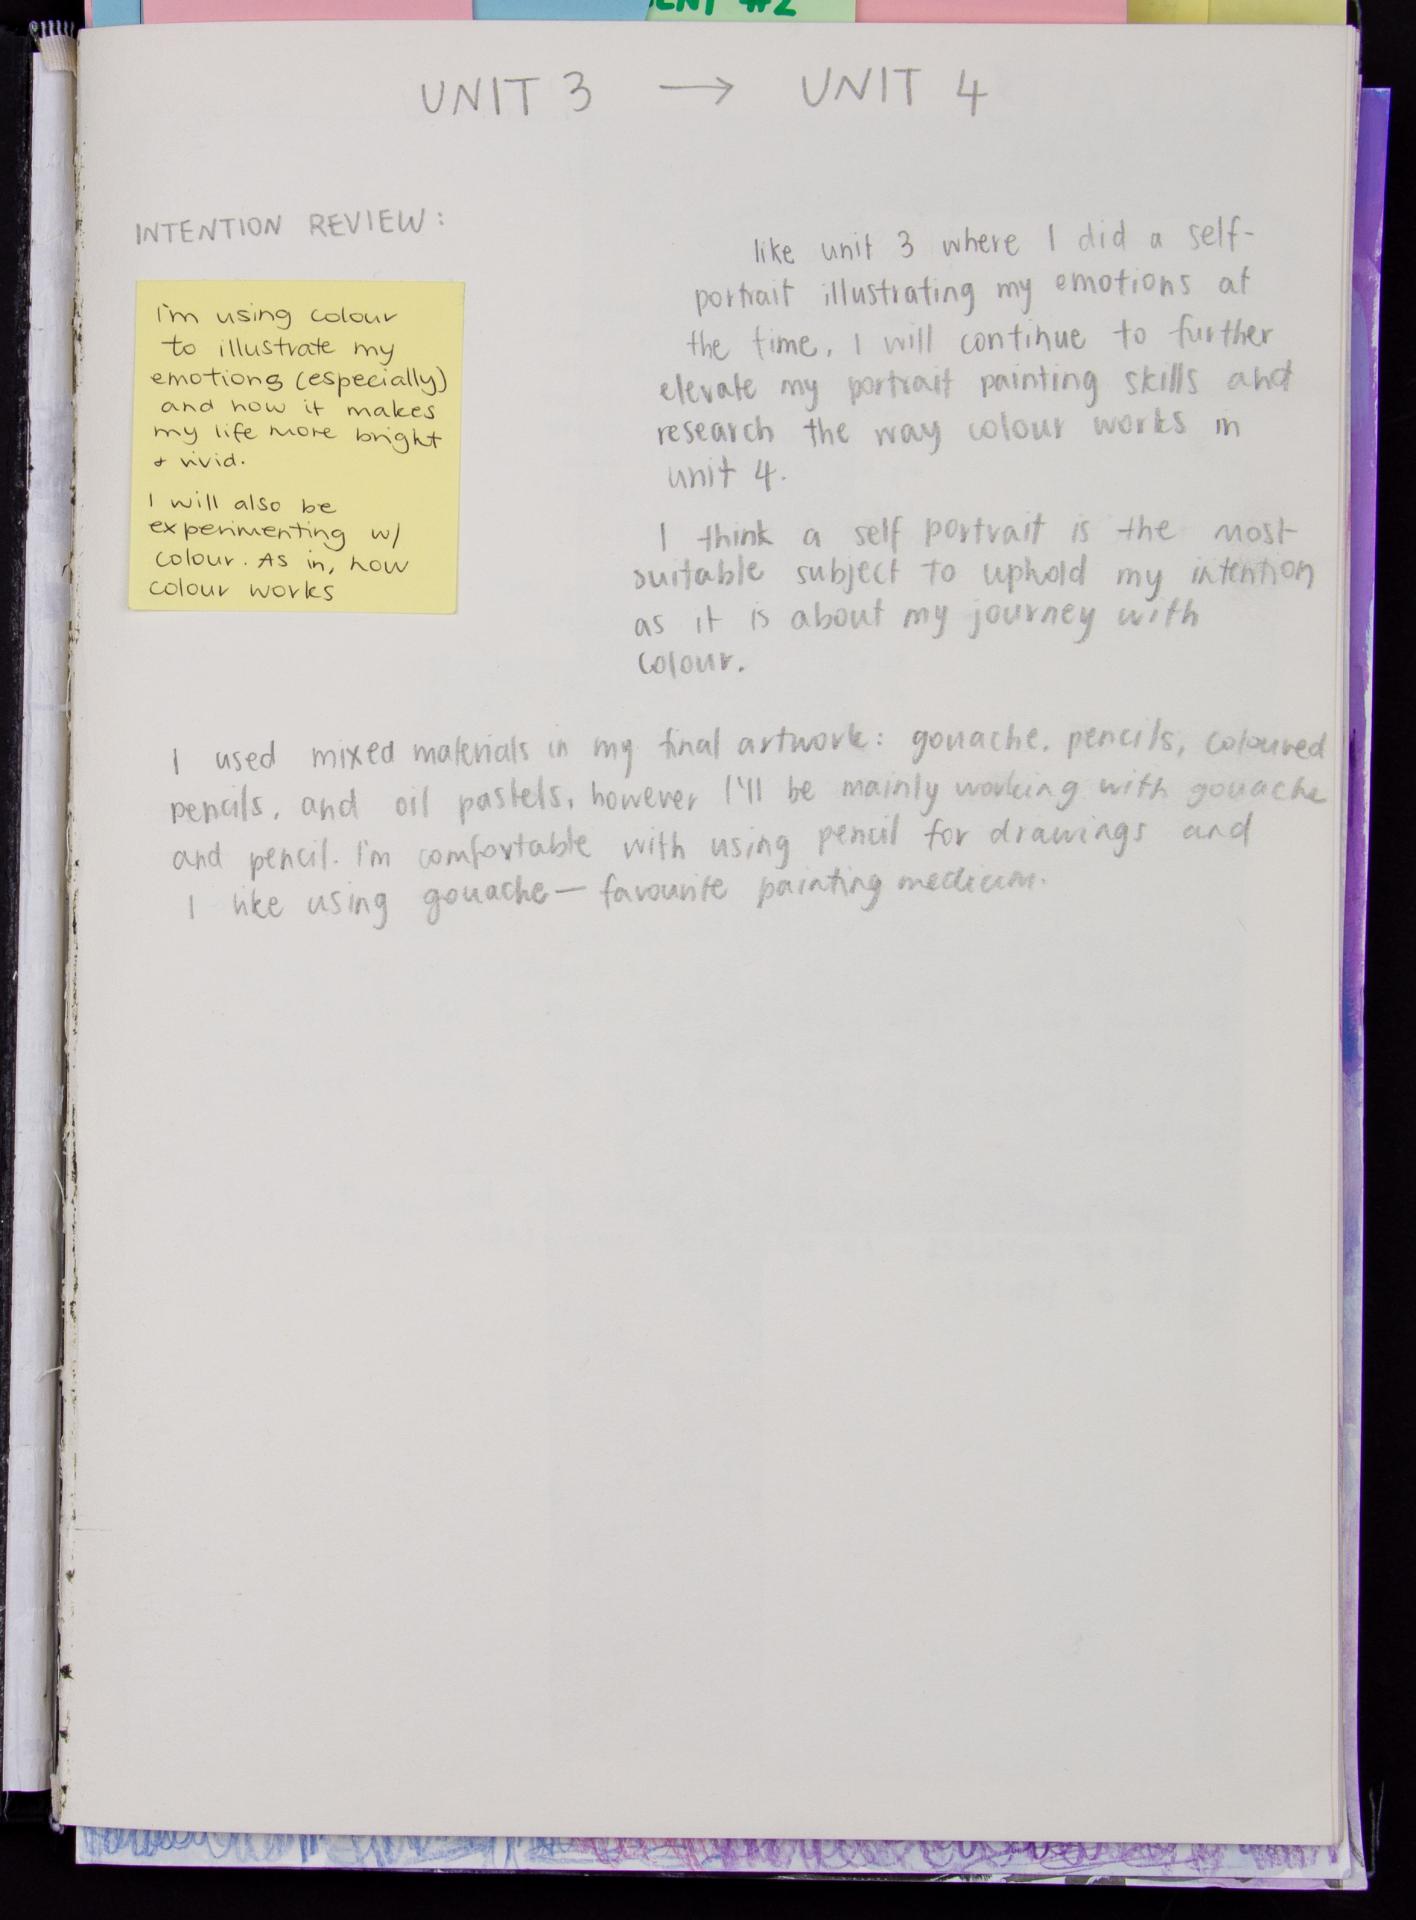 ENT #2
UNIT 3 → UNIT 4
INTENTION REVIEW:
I'm using colour
to illustrate my
emotions (especially)
and how it makes
my life more bright
+ vivid.
I will also be
experimenting w/
colour. As in, how
colour works
like unit 3 where I did a self-
portrait illustrating my emotions at
the time, I will continue to further
elevate my portrait painting skills and
research the way colour works in
unit 4.
I think a self portrait is the most
suitable subject to uphold my intention
as it is about my journey with
colour.
I used mixed materials in my final artwork: gouache, pencils, coloured
pencils, and oil pastels, however I'll be mainly working with gouache
and pencil. I'm comfortable with using pencil for drawings and
I like using gouache — favourite painting medium.